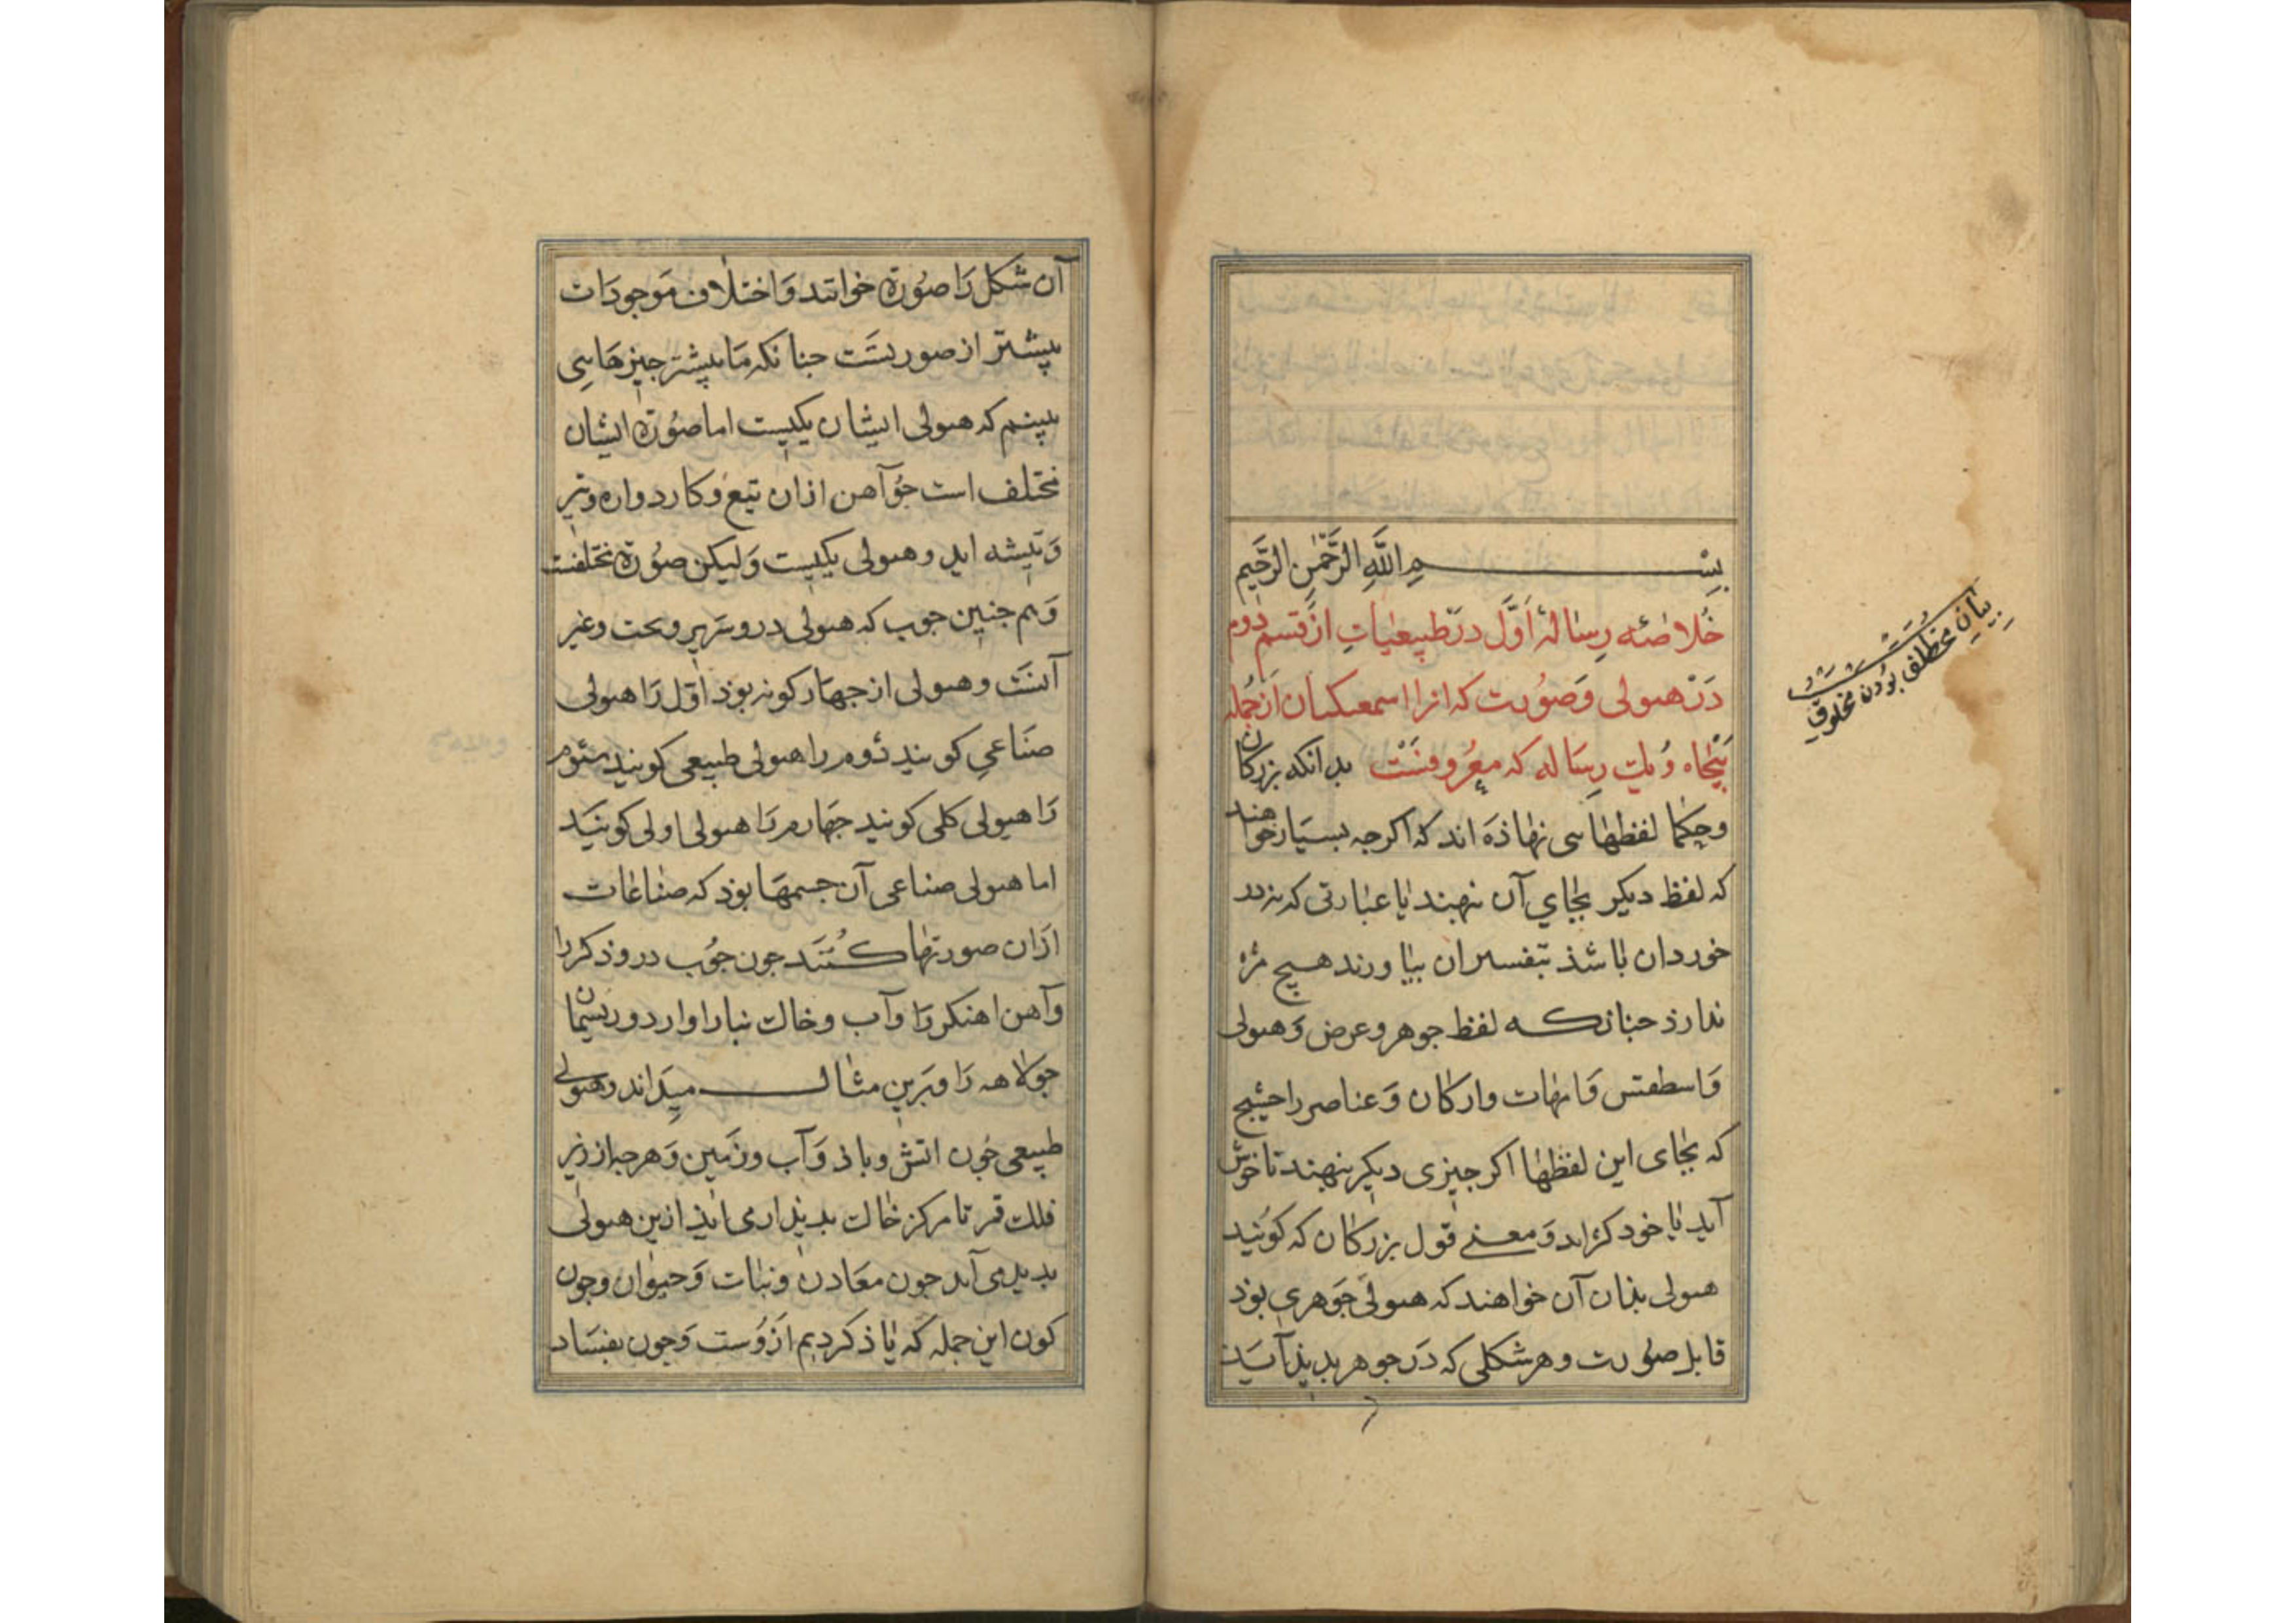 بِسْمِ اللَّهِ الرَّحْمٰنِ الرَّحِيمِ
خُلاصَهٔ رِسالهٔ اَوَّل دَر طَبِیعیاتِ از قسمِ دوم
دَر هیولی وَصُورت که انرا اسمعکیان اَز جُمله
پَنجاه وُیک رِسَاله که مَعرُوفسَت بدانکه بزرکان
وحکما لفظهاسی نهاذه اند که اکرچه بسیار خواهند
که لفظ دیکر بجای آن نهند یا عبارتی که نزد
خوردان باشذ بتفسیران بیاورند هیچ مزه
ندارذ جنانکه لفظ جوهر وعرض وَهیولی
وَاسطقس وَامهات وارکان وَعناصر راحیٔج
که بجای این لفظها اکر جیزی دیکر بنهند ناخوش
آید یا خود کزاید وَمعنی قول بزرکان که کویَند
هیولی بذان آن خواهند که هیولی جَوهری بوَد
قابل صوُرت وهرشکلی که دَر جوهر بدیذ آیَد
بیانِ مخطلف بوُدن مخلوق
آن شکل رَا صوُرة خوانند وَاختلاف مَوجودَات
بیشتر از صورتسَت جنانکه مَا بیشتر جیزهَایی
بینیم که هیولی ایشان یکیست اما صوُرة ایشان
مختلف است جوُ آهن ازان تیغ وکارد واره وتبر
وَتیشه اید وهیولی یکیست وَلیکن صوُرة مختلفست
وَهم جنین جوب که هیولی در وسَریر وتخت وغیر
آنسَت وهیولی از جهار کونه بوذ اوَّل رَا هیولی
صنَاعی کویند دُوم را هیولی طبیعی کویند سئوم
رَا هیولی کلی کویند جهَارم رَا هیولی اولی کوینَد
اما هیولی صناعی آن جسمهَا بوَد که صناعات
ازان صورتها کُنَند جون جوُب دروذکر را
وآهن اهنکر رَا وآب وخاک بنا را وارد وریسمان
جولاهه رَا وبَرین مثال میداند وهیولی
طبیعی جوُن اتش وباذ وَآب وزَمین وَهرجه از زیر
فلک قمر تا مرکز خاک بدیذار می ایذ ازین هیولی
بدید می آید جون معَادن ونبات وَحیوان وجون
کون این جمله که یاذ کردیم اَزوُست وَجون بفسَاد